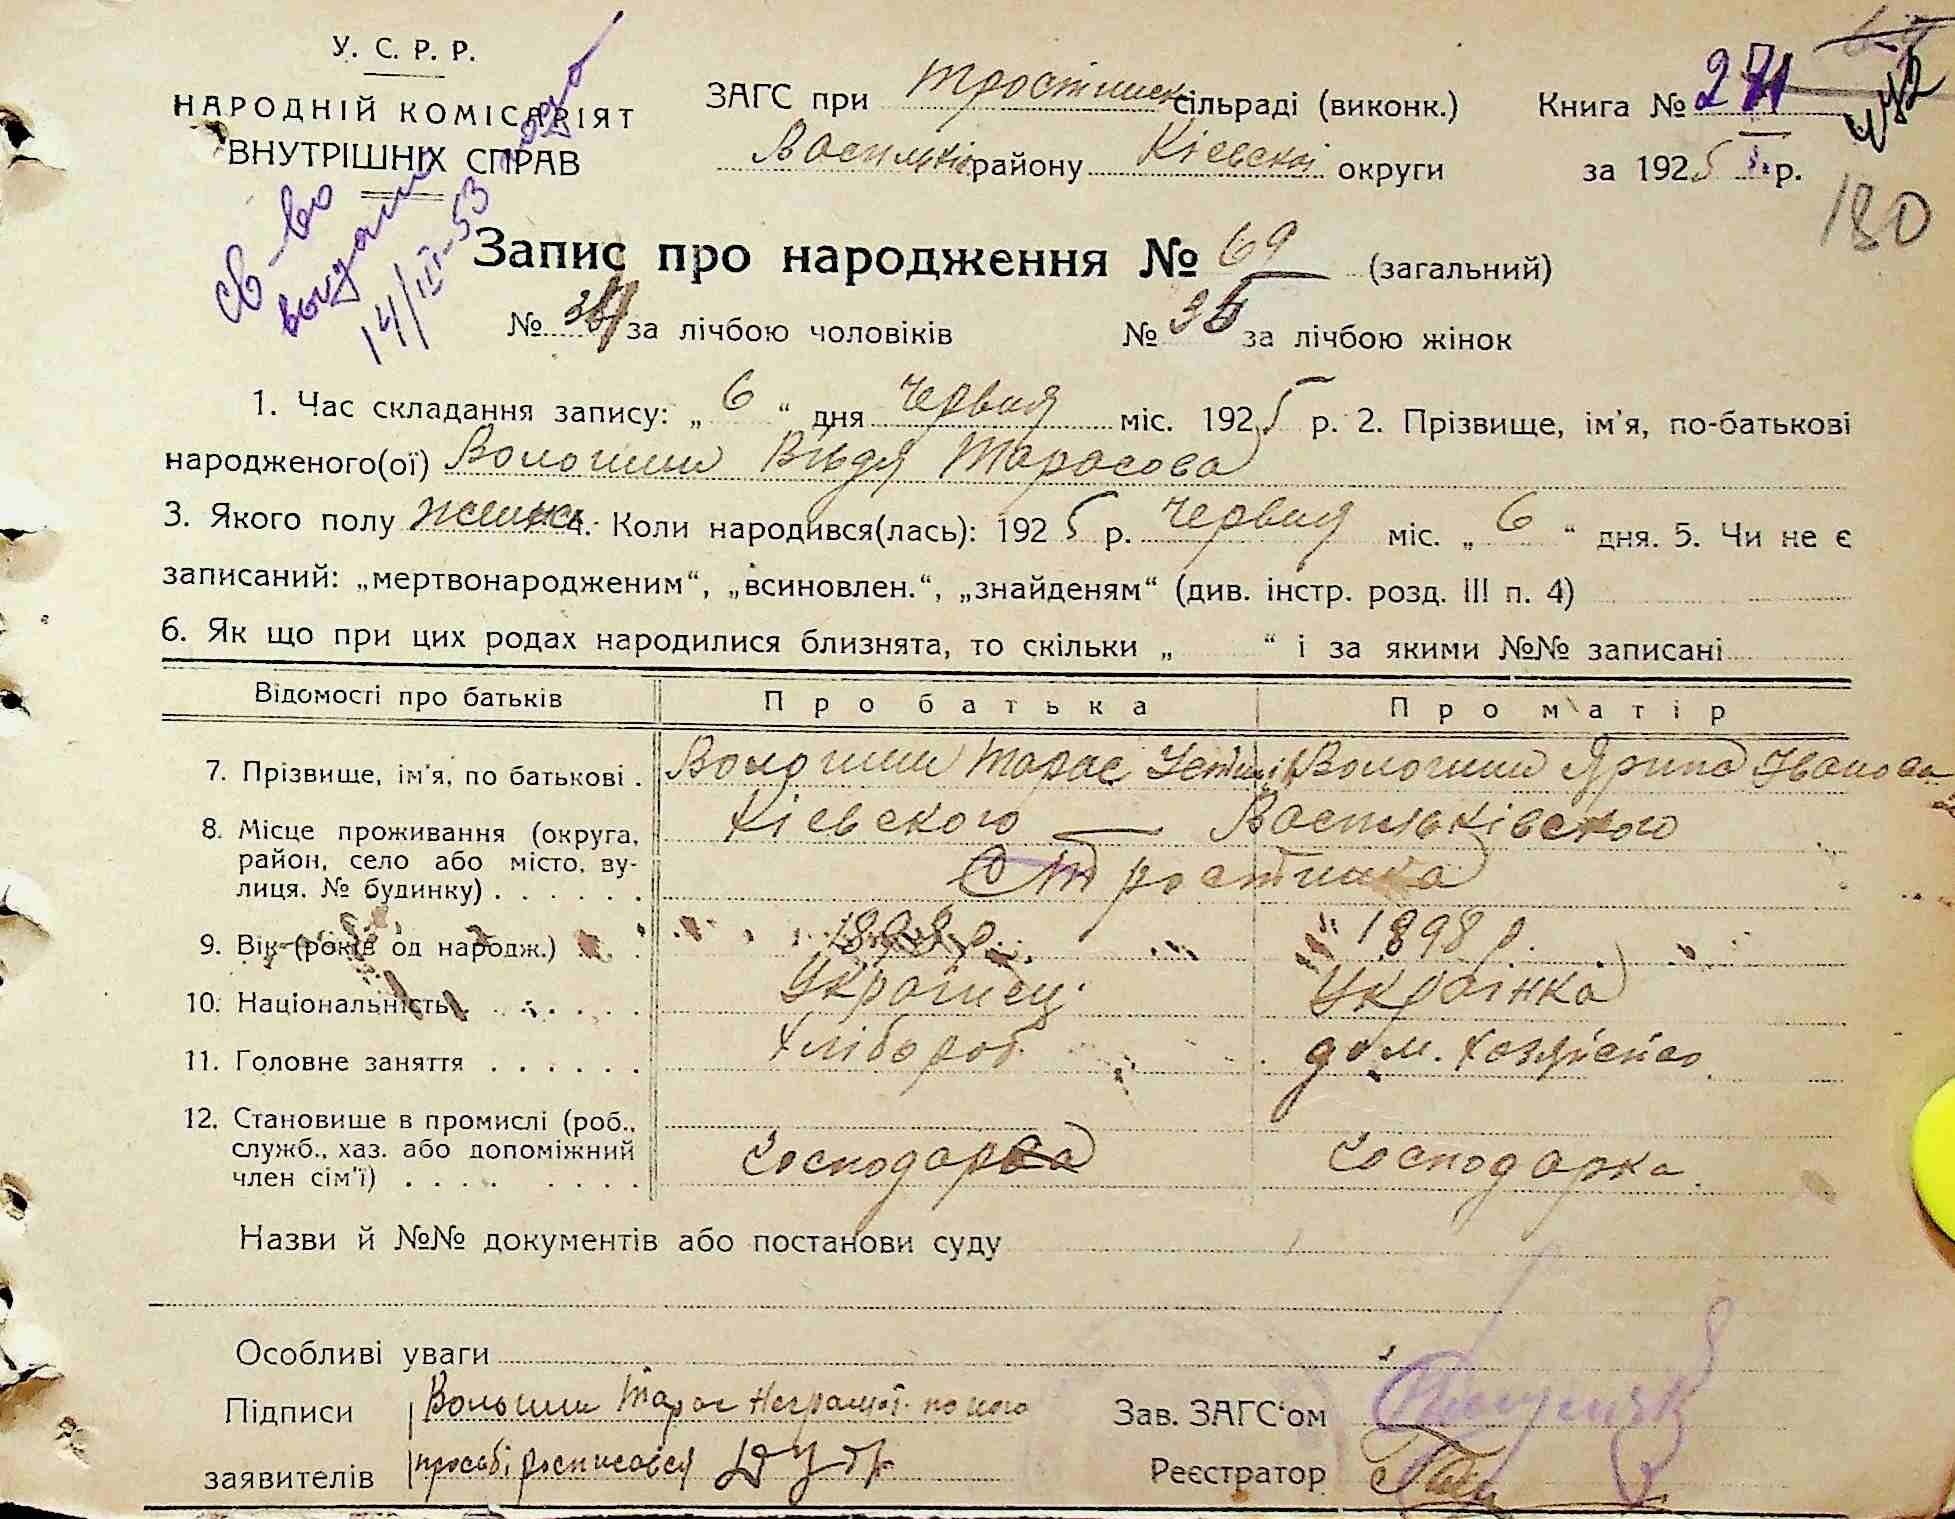 У. С. Р. Р.
НАРОДНІЙ КОМІСАРІЯТ
ВНУТРІШНІХ СПРАВ
св-во
выдано
14/III-53 года
ЗАГС при Тростинск. сільраді (виконк.)
Васильків району Кіевскоі округи
Книга № 271
за 1925 р.
142
180
Запис про народження № 69 (загальний)
№ за лічбою чоловіків № 35 за лічбою жінок
1. Час складання запису: „ 6 “ дня червня міс. 1925 р. 2. Прізвище, ім'я, по-батькові
народженого(ої) Волошин Тарасова
3. Якого полу жіноч. 4. Коли народився(лась): 1925 р. червня міс. „ 6 “ дня. 5. Чи не є
записаний: „мертвонародженим“, „всиновлен.“, „знайденям“ (див. інстр. розд. III п. 4)
6. Як що при цих родах народилися близнята, то скільки „ “ і за якими №№ записані
Відомості про батьків Про батька Про матір
7. Прізвище, ім'я, по батькові . Волошин Тарас Волошин Ярина Іванова
8. Місце проживання (округа, Кіевского — Васильківского
район, село або місто, ву- с Тростинка
лиця. № будинку) . . . . . .
9. Вік (років од народж.) 1898 р. 1898 р.
10. Національність . . . . . . Украінец. Украінка
11. Головне заняття . . . . . . Хлібороб. дом. хозяйство.
12. Становище в промислі (роб.,
служб., хаз. або допоміжний Господарка Господарка
член сім'ї) . . . . . . . .
Назви й №№ документів або постанови суду
Особливі уваги
Підписи Волошин Тарас Неграмот. по його
Зав. ЗАГС'ом
заявителів просьбі росписався
Реєстратор